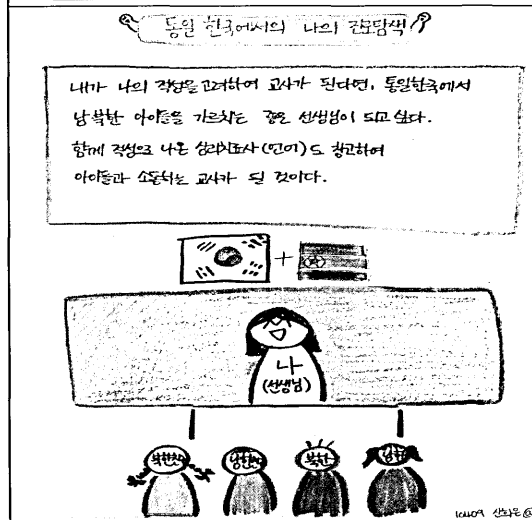 통일 한국에서의 나의 진로탐색
내가 나의 적성을 고려하여 교사가 된다면, 통일한국에서
남북한 아이들을 가르치는 좋은 선생님이 되고 싶다.
함께 적성으로 나온 심리치료사(언어)도 참고하여
아이들과 소통하는 교사가 될 것이다.
나
(선생님)
북한
남한
북한
남한